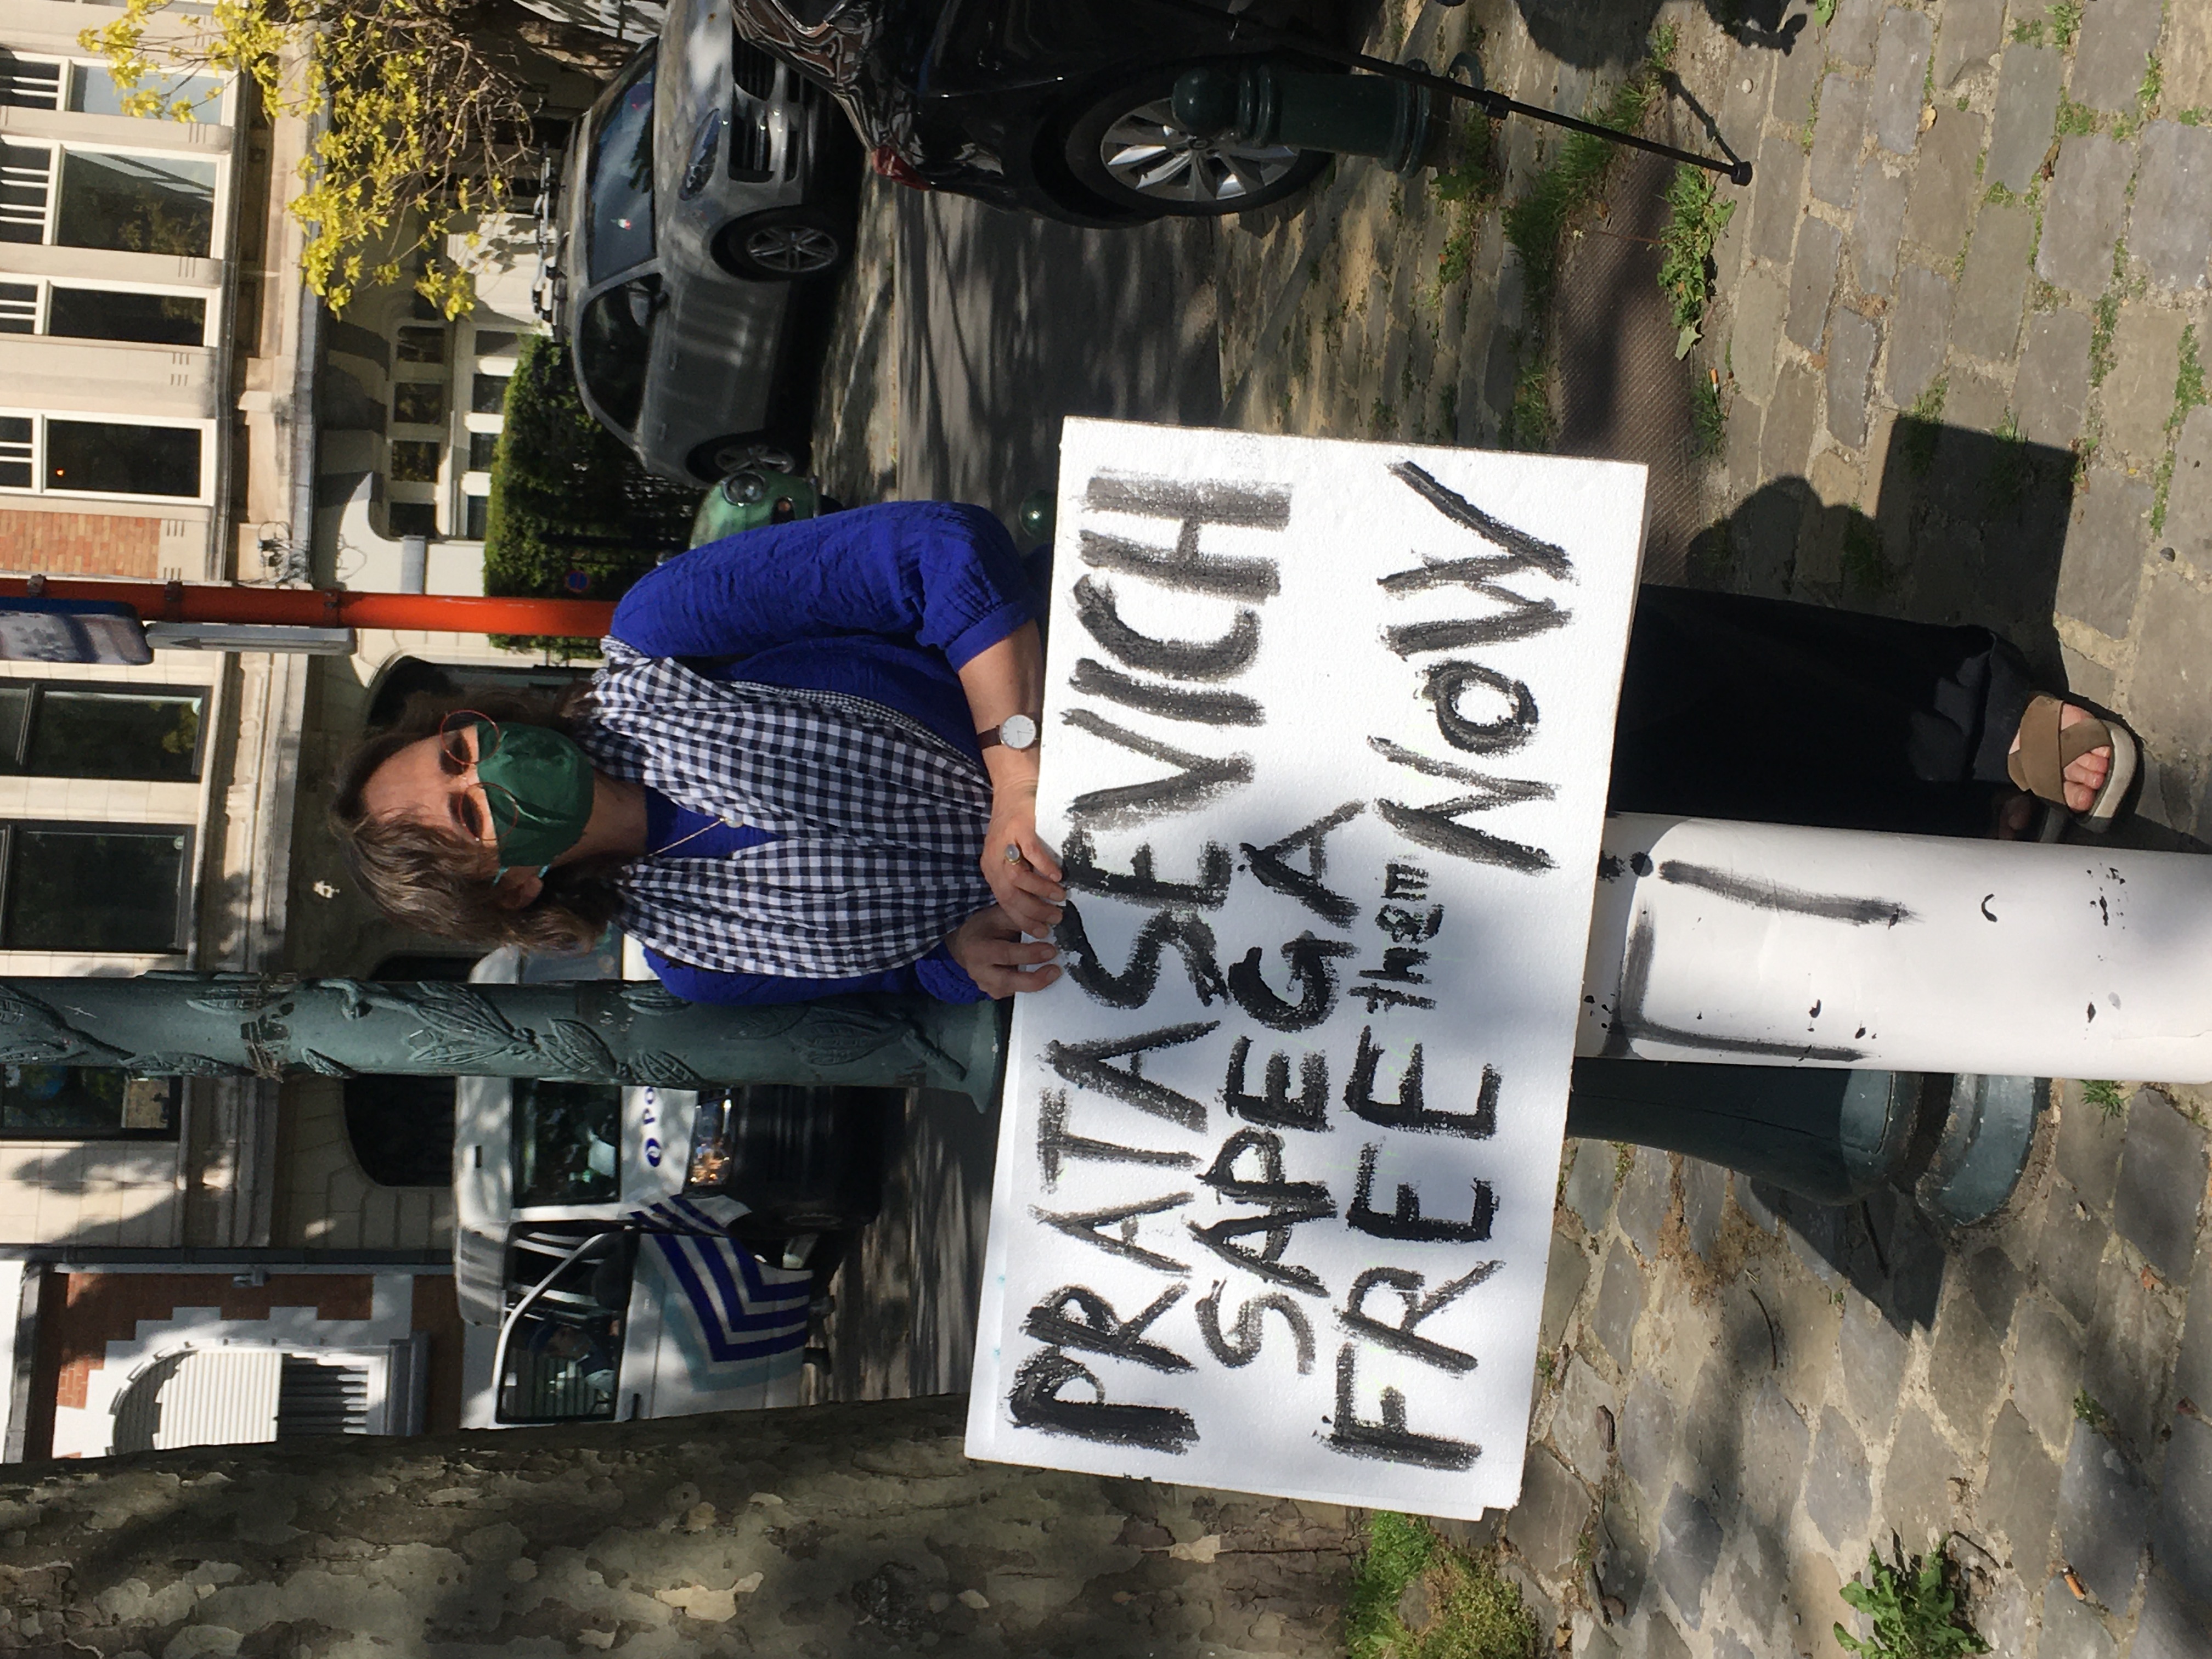 PRATASEVICH
SAPEGA
FREE them NOW
Po